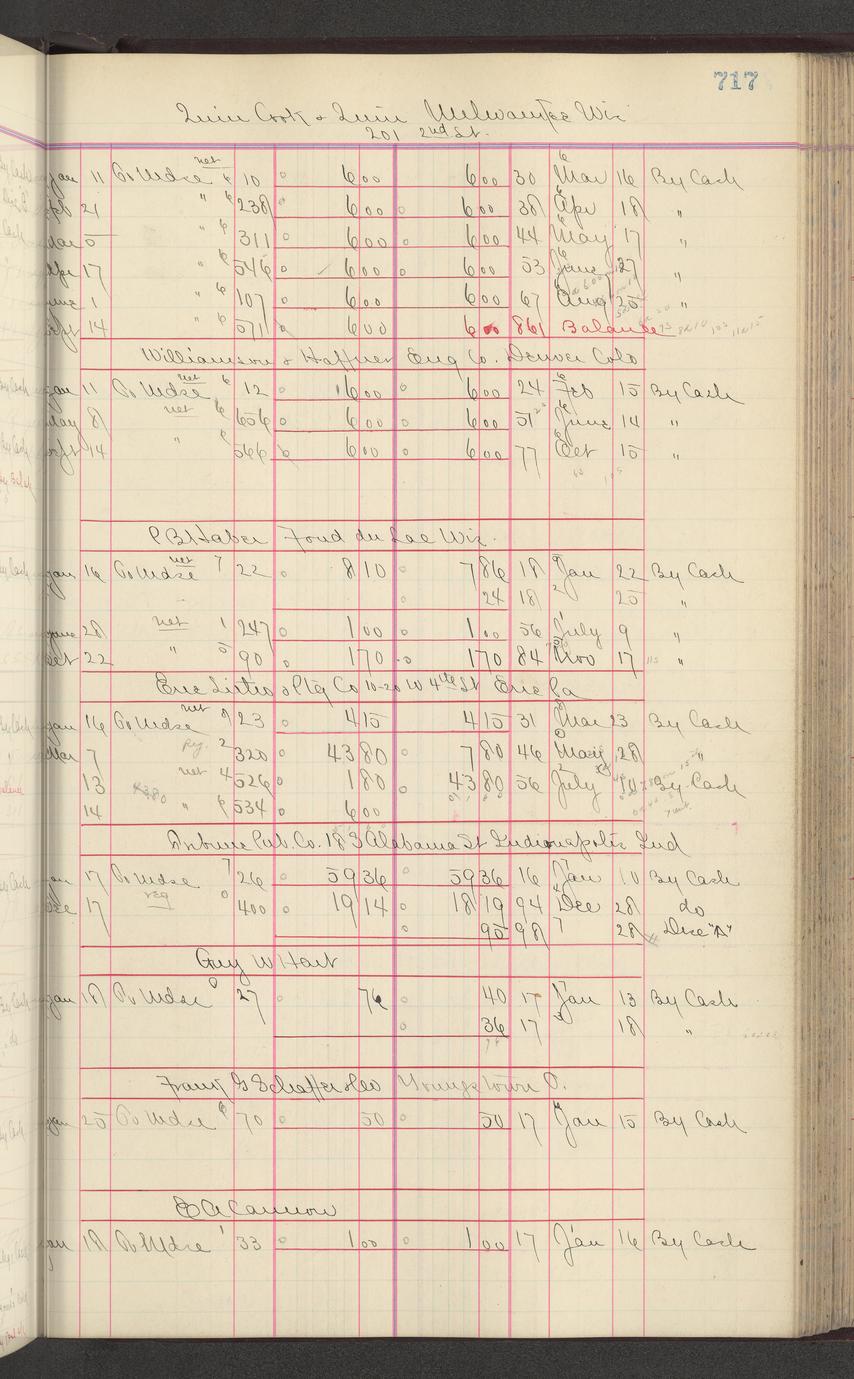 717
Quin Cook & Quin Milwaukee Wis
201 2nd St.
Jan 11 To Mdse net 6 10 6 00 6 00 30 Mar 16 By Cash
Feb 21 " " 6 238 6 00 6 00 38 Apr 18 "
Mar 5 " 6 311 6 00 6 00 44 May 17 "
Apr 17 " 6 546 6 00 6 00 53 June 27 "
June 1 " 6 107 6 00 6 00 67 Aug 25 "
Sept 14 " 6 571 6 00 6 00 861 Balance
Williamson & Haffner Eng Co. Denver Colo
Jan 11 To Mdse net 6 12 6 00 6 00 24 Feb 15 By Cash
May 8 net 6 656 6 00 6 00 51 June 14 "
Sept 14 " 6 566 6 00 6 00 77 Oct 15 "
P B Haber Fond du Lac Wis.
Jan 16 To Mdse net 7 22 8 10 7 86 18 Jan 22 By Cash
24 18 25 "
June 28 net 1 247 1 00 1 00 56 July 9 "
Oct 22 " 5 90 1 70 1 70 84 Nov 17 "
Erie Litho & Ptg Co 10-20 W 4th St Erie Pa
Jan 16 To Mdse net 9 23 4 15 4 15 31 Mar 23 By Cash
Mar 7 Reg. 2 320 43 80 7 80 46 May 28 "
13 net 4 526 1 80 43 80 56 July By Cash
14 4380 " 6 534 6 00
Tribune Pub. Co. 18 S Alabama St Indianapolis Ind
Jan 17 To Mdse 7 26 59 36 59 36 16 Jan 10 By Cash
Dec 17 reg 0 400 19 14 18 19 94 Dec 28 do
95 98 7 28 Disc "A"
Guy W Hart
Jan 18 To Mdse 0 27 76 40 17 Jan 13 By Cash
36 17 18 "
Frank G Schaffer & Co Youngstown O.
Jan 25 To Mdse 6 70 50 50 17 Jan 15 By Cash
E A Cannon
Jan 18 To Mdse 1 33 1 00 1 00 17 Jan 16 By Cash